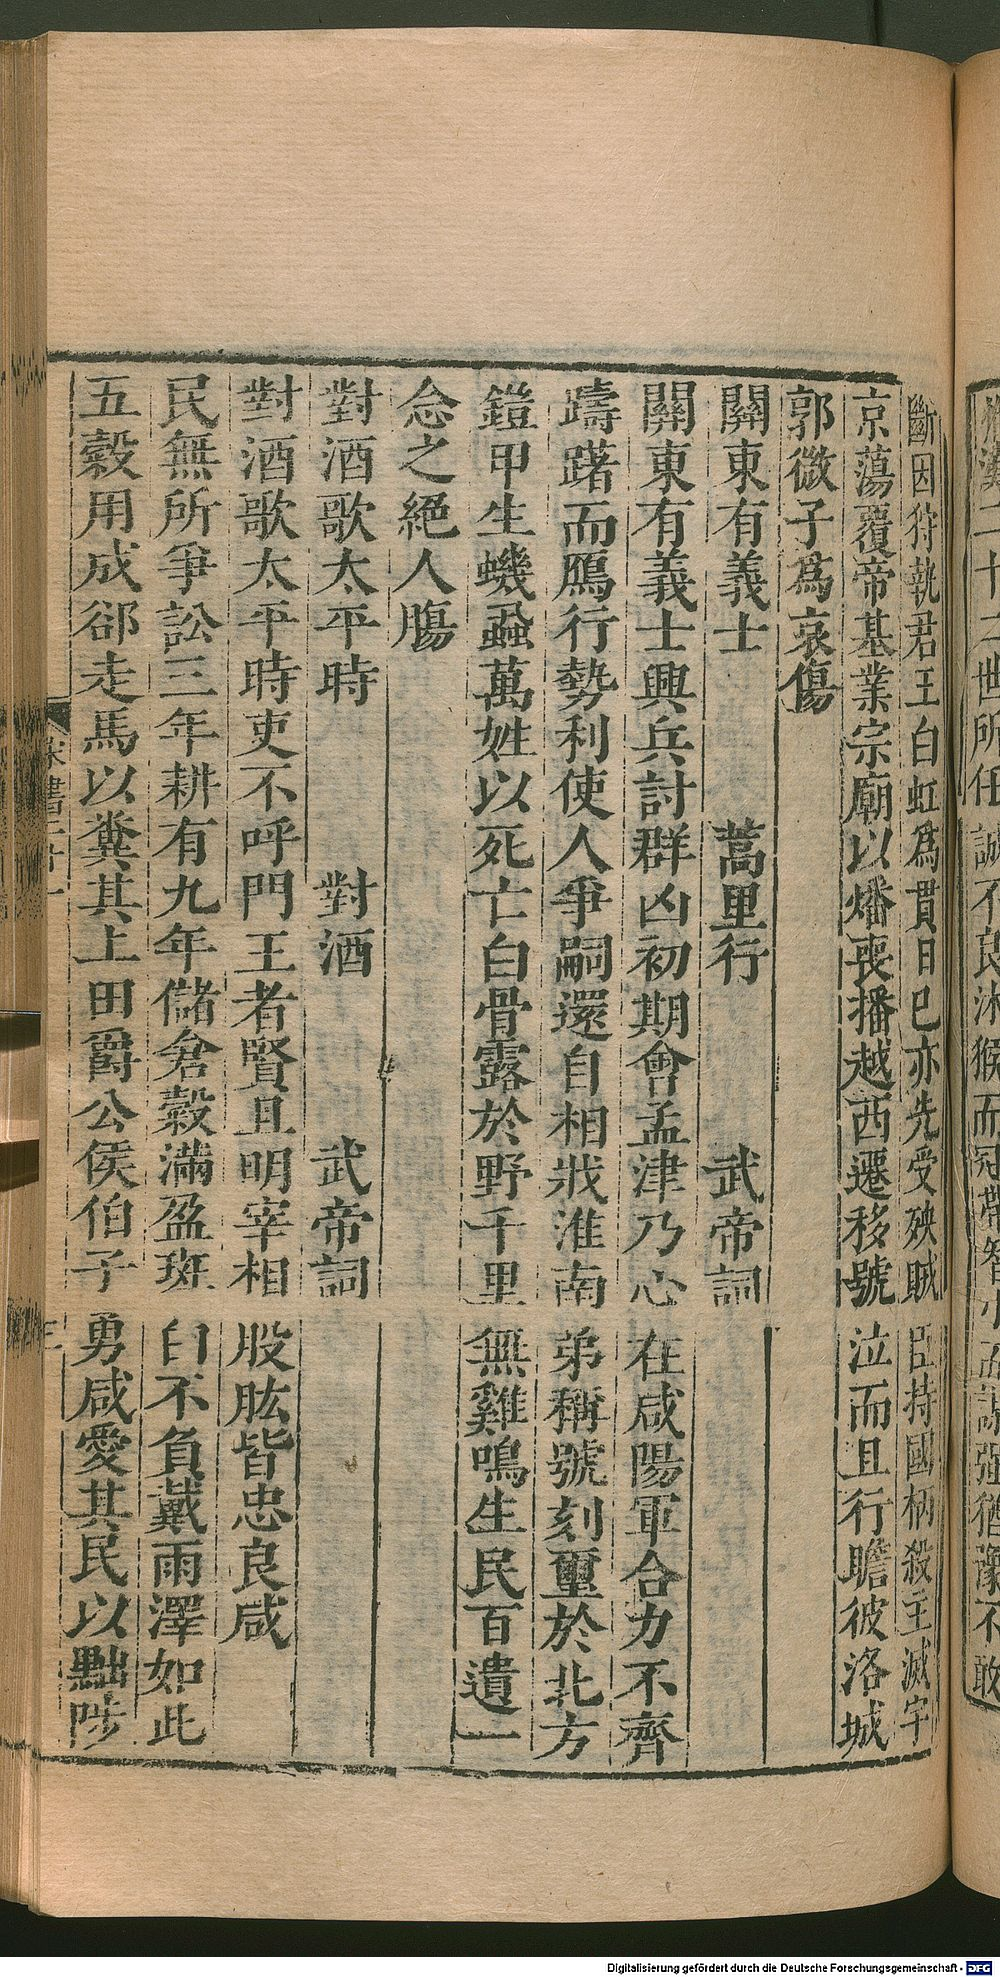 斷因狩執君王白虹爲貫日已亦先受殃賊臣持國柄殺主滅宇
京蕩覆帝基業宗廟以燔喪播越西遷移號泣而且行瞻彼洛城
郭微子爲哀傷
關東有義士　蒿里行　武帝詞
關東有義士興兵討群凶初期會孟津乃心在咸陽軍合力不齊
躊躇而鴈行勢利使人爭嗣還自相戕淮南弟稱號刻璽於北方
鎧甲生蟣蝨萬姓以死亡白骨露於野千里無雞鳴生民百遺一
念之絕人膓
對酒歌太平時　對酒　武帝詞
對酒歌太平時吏不呼門王者賢且明宰相股肱皆忠良咸
民無所爭訟三年耕有九年儲倉穀滿盈班白不負戴雨澤如此
五穀用成郤走馬以糞其上田爵公侯伯子勇咸愛其民以黜陟
三
Digitalisierung gefördert durch die Deutsche Forschungsgemeinschaft - DFG